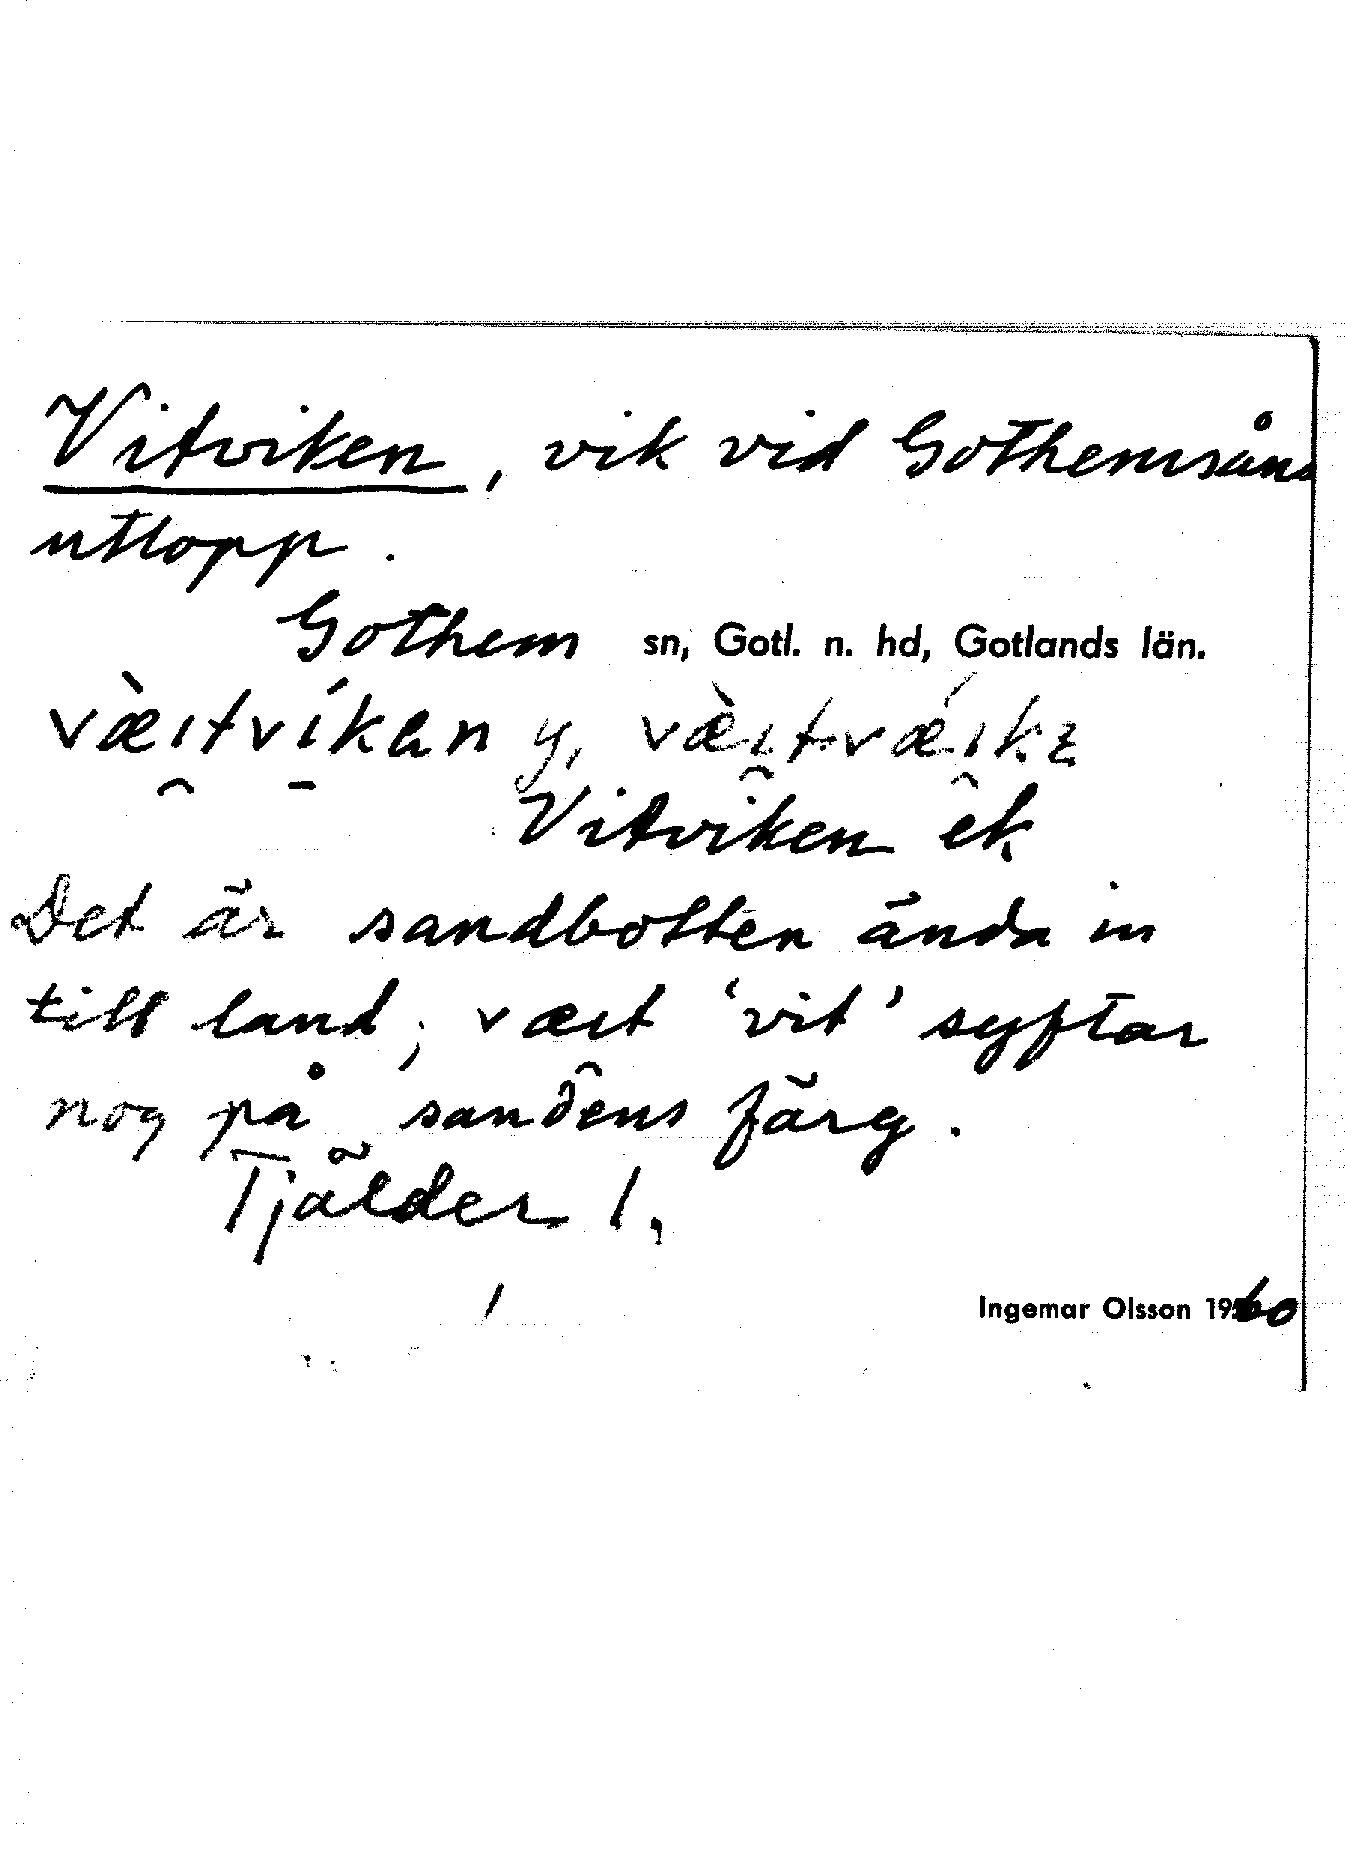 Vitviken, vik vid Gothemsåns
utlopp.
Gothem sn, Gotl. n. hd, Gotlands län.
væ̀ıtvíkan y, væ̀ıtvǽıkɛ
Vitviken ek
Det är sandbotten ända in
till land; væıt 'vit' syftar
nog på sandens färg.
Tjälder 1.
Ingemar Olsson 1960